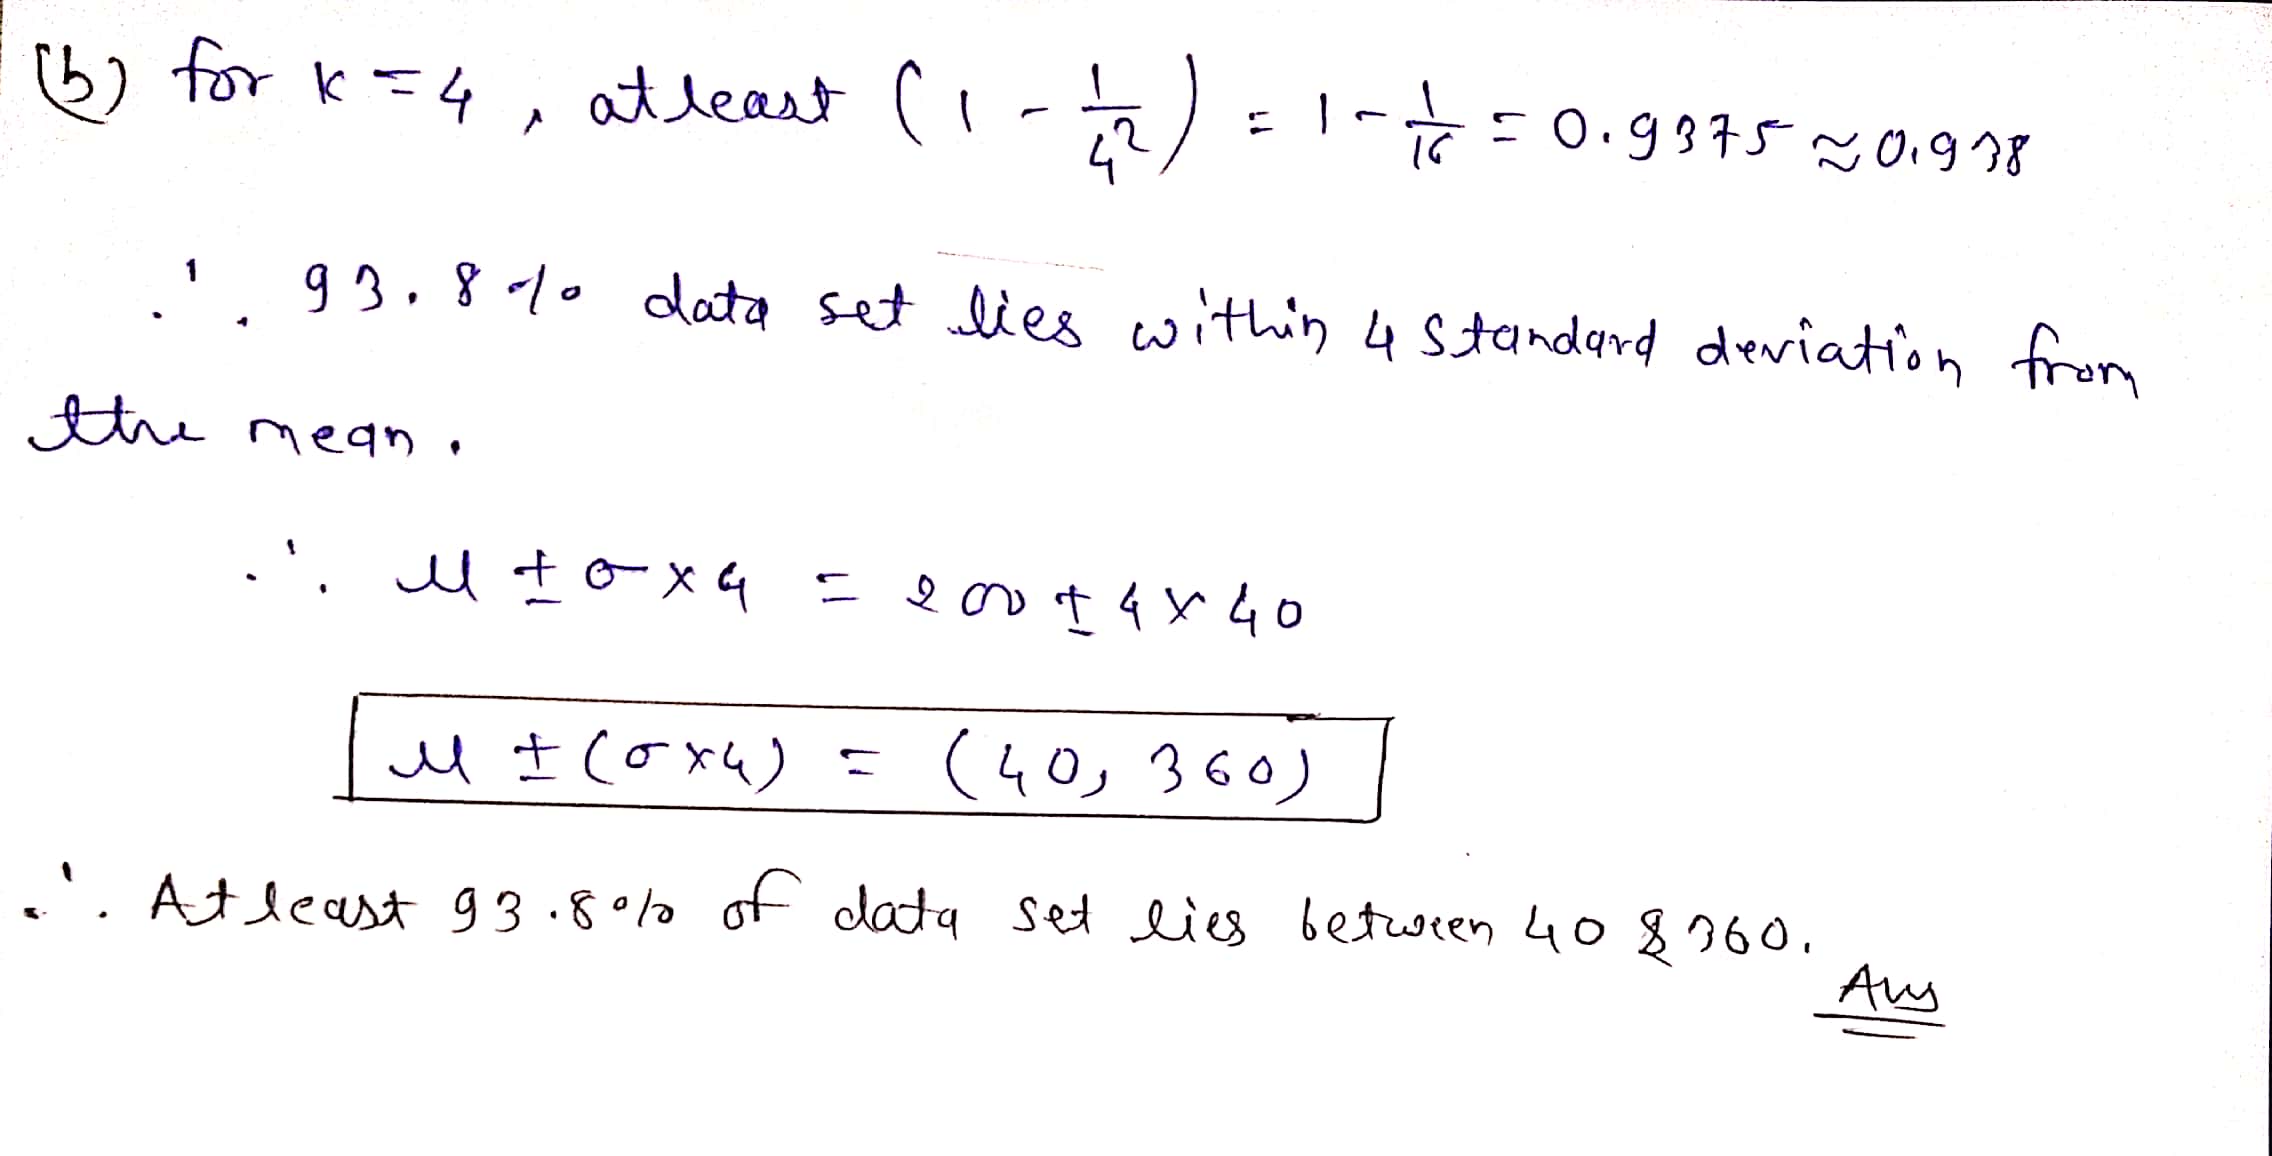 (b) for k = 4, atleast (1 - 1/4²) = 1 - 1/16 = 0.9375 ≈ 0.938
∴ 93.8% data set lies within 4 standard deviation from
the mean.
∴ μ ± σ × 4 = 200 ± 4 × 40
μ ± (σ×4) = (40, 360)
∴ Atleast 93.8% of data set lies between 40 & 360.
Ans